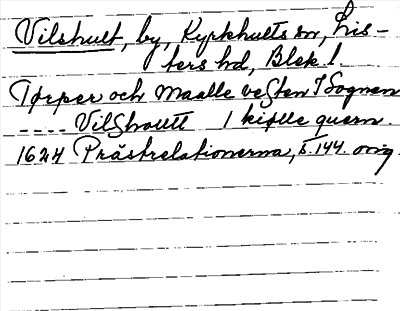 Vilshult, by, Kyrkhults sn, Lis-
ters hd, Blek l.
Torper och Maalle vesten I Sognen
---- Vilshoutt 1 kiølle quern.
1624 Prästrelationerna, s. 144. orig.